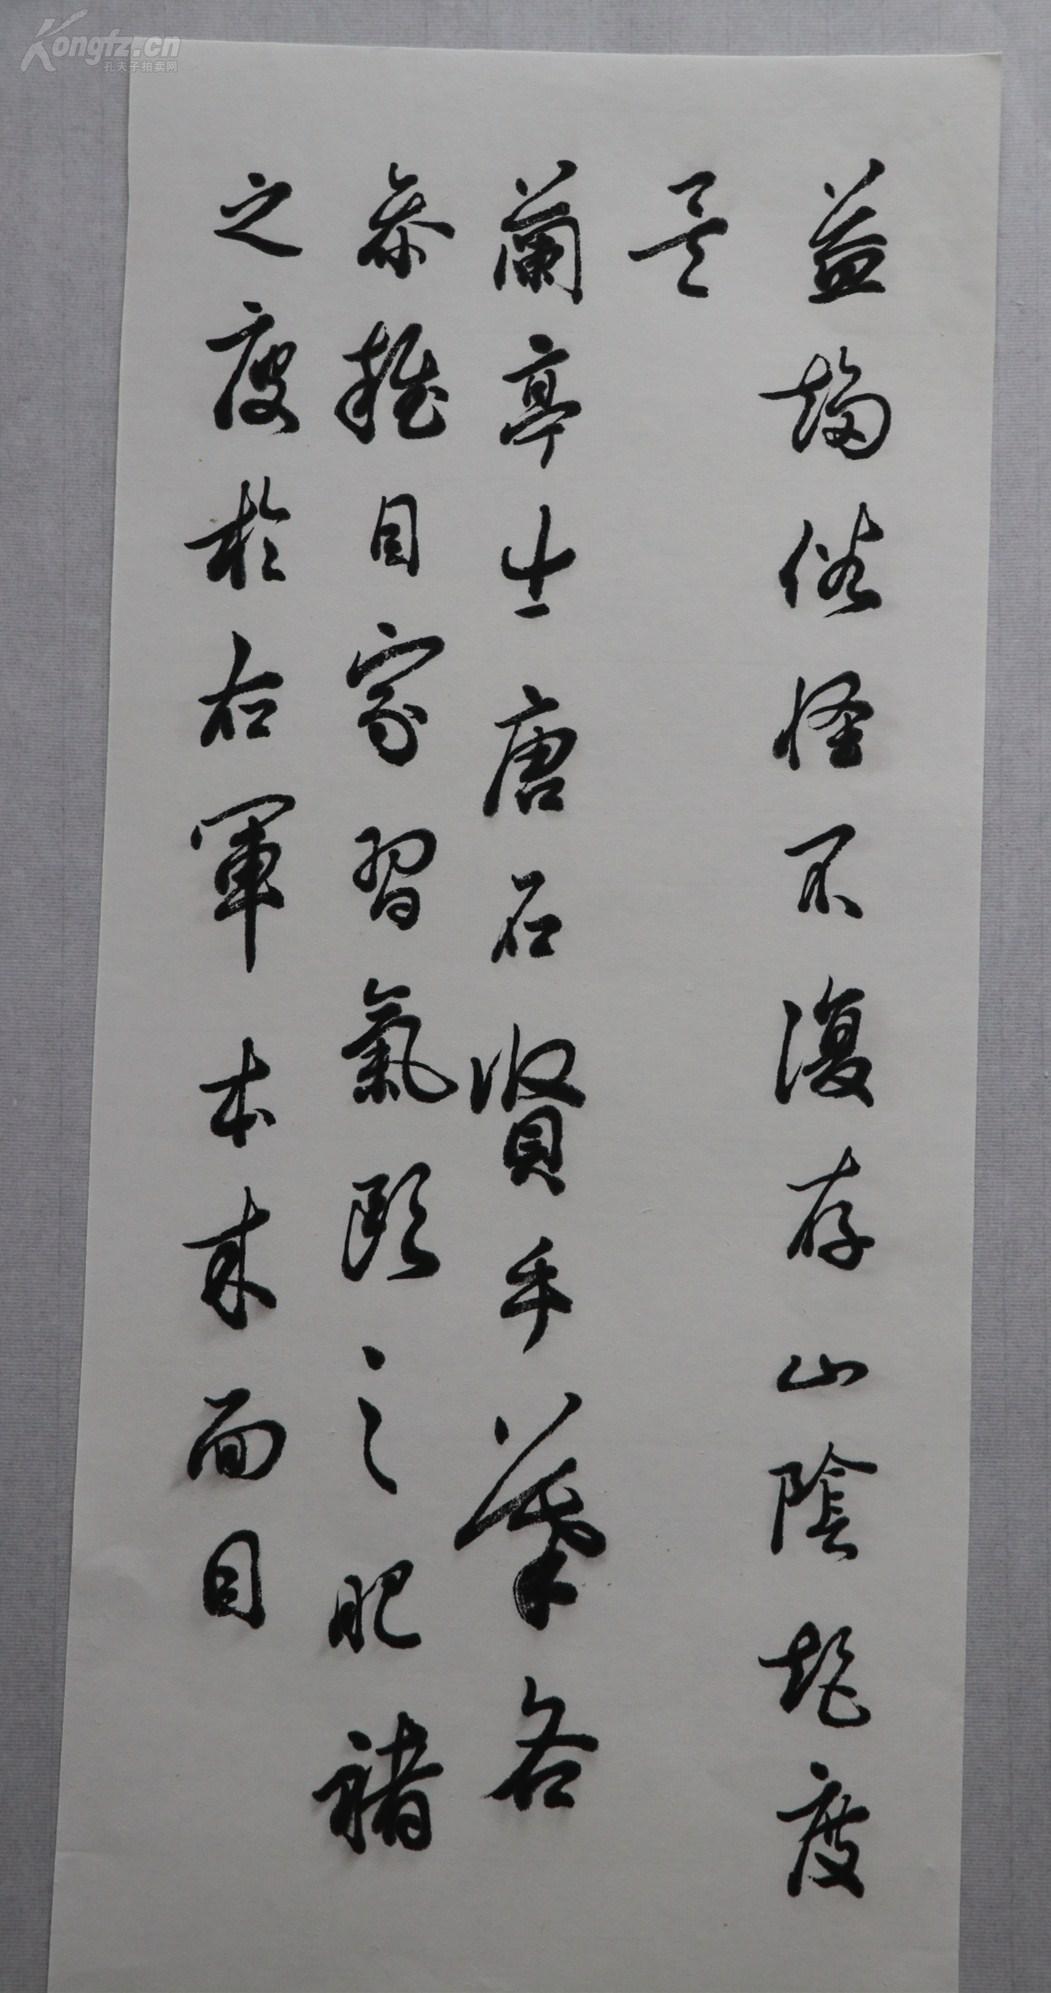 益趨俗怪不復存山陰矩度
矣
蘭亭出唐石賢手摹各
參雜自家習氣歐之肥褚
之瘦於右軍本來面目
Kongfz.cn
孔夫子拍卖网